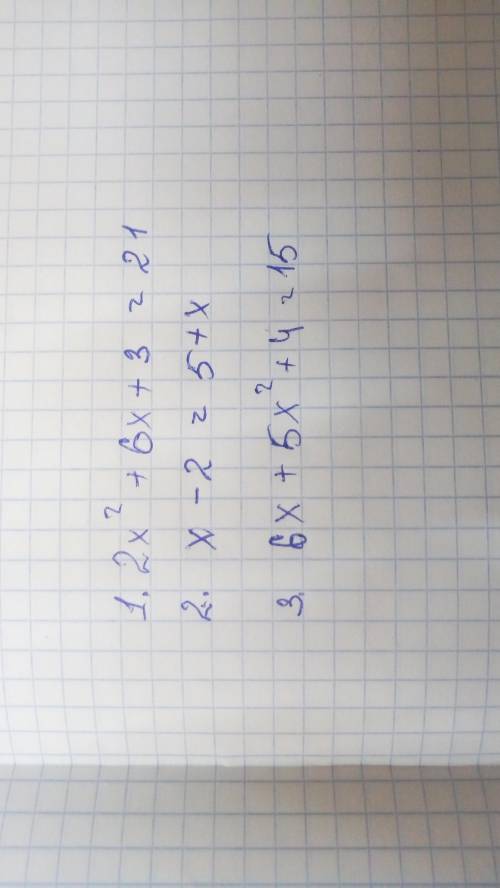 1. 2x² + 6x + 3 = 21
2. x - 2 = 5 + x
3. 6x + 5x² + 4 = 15